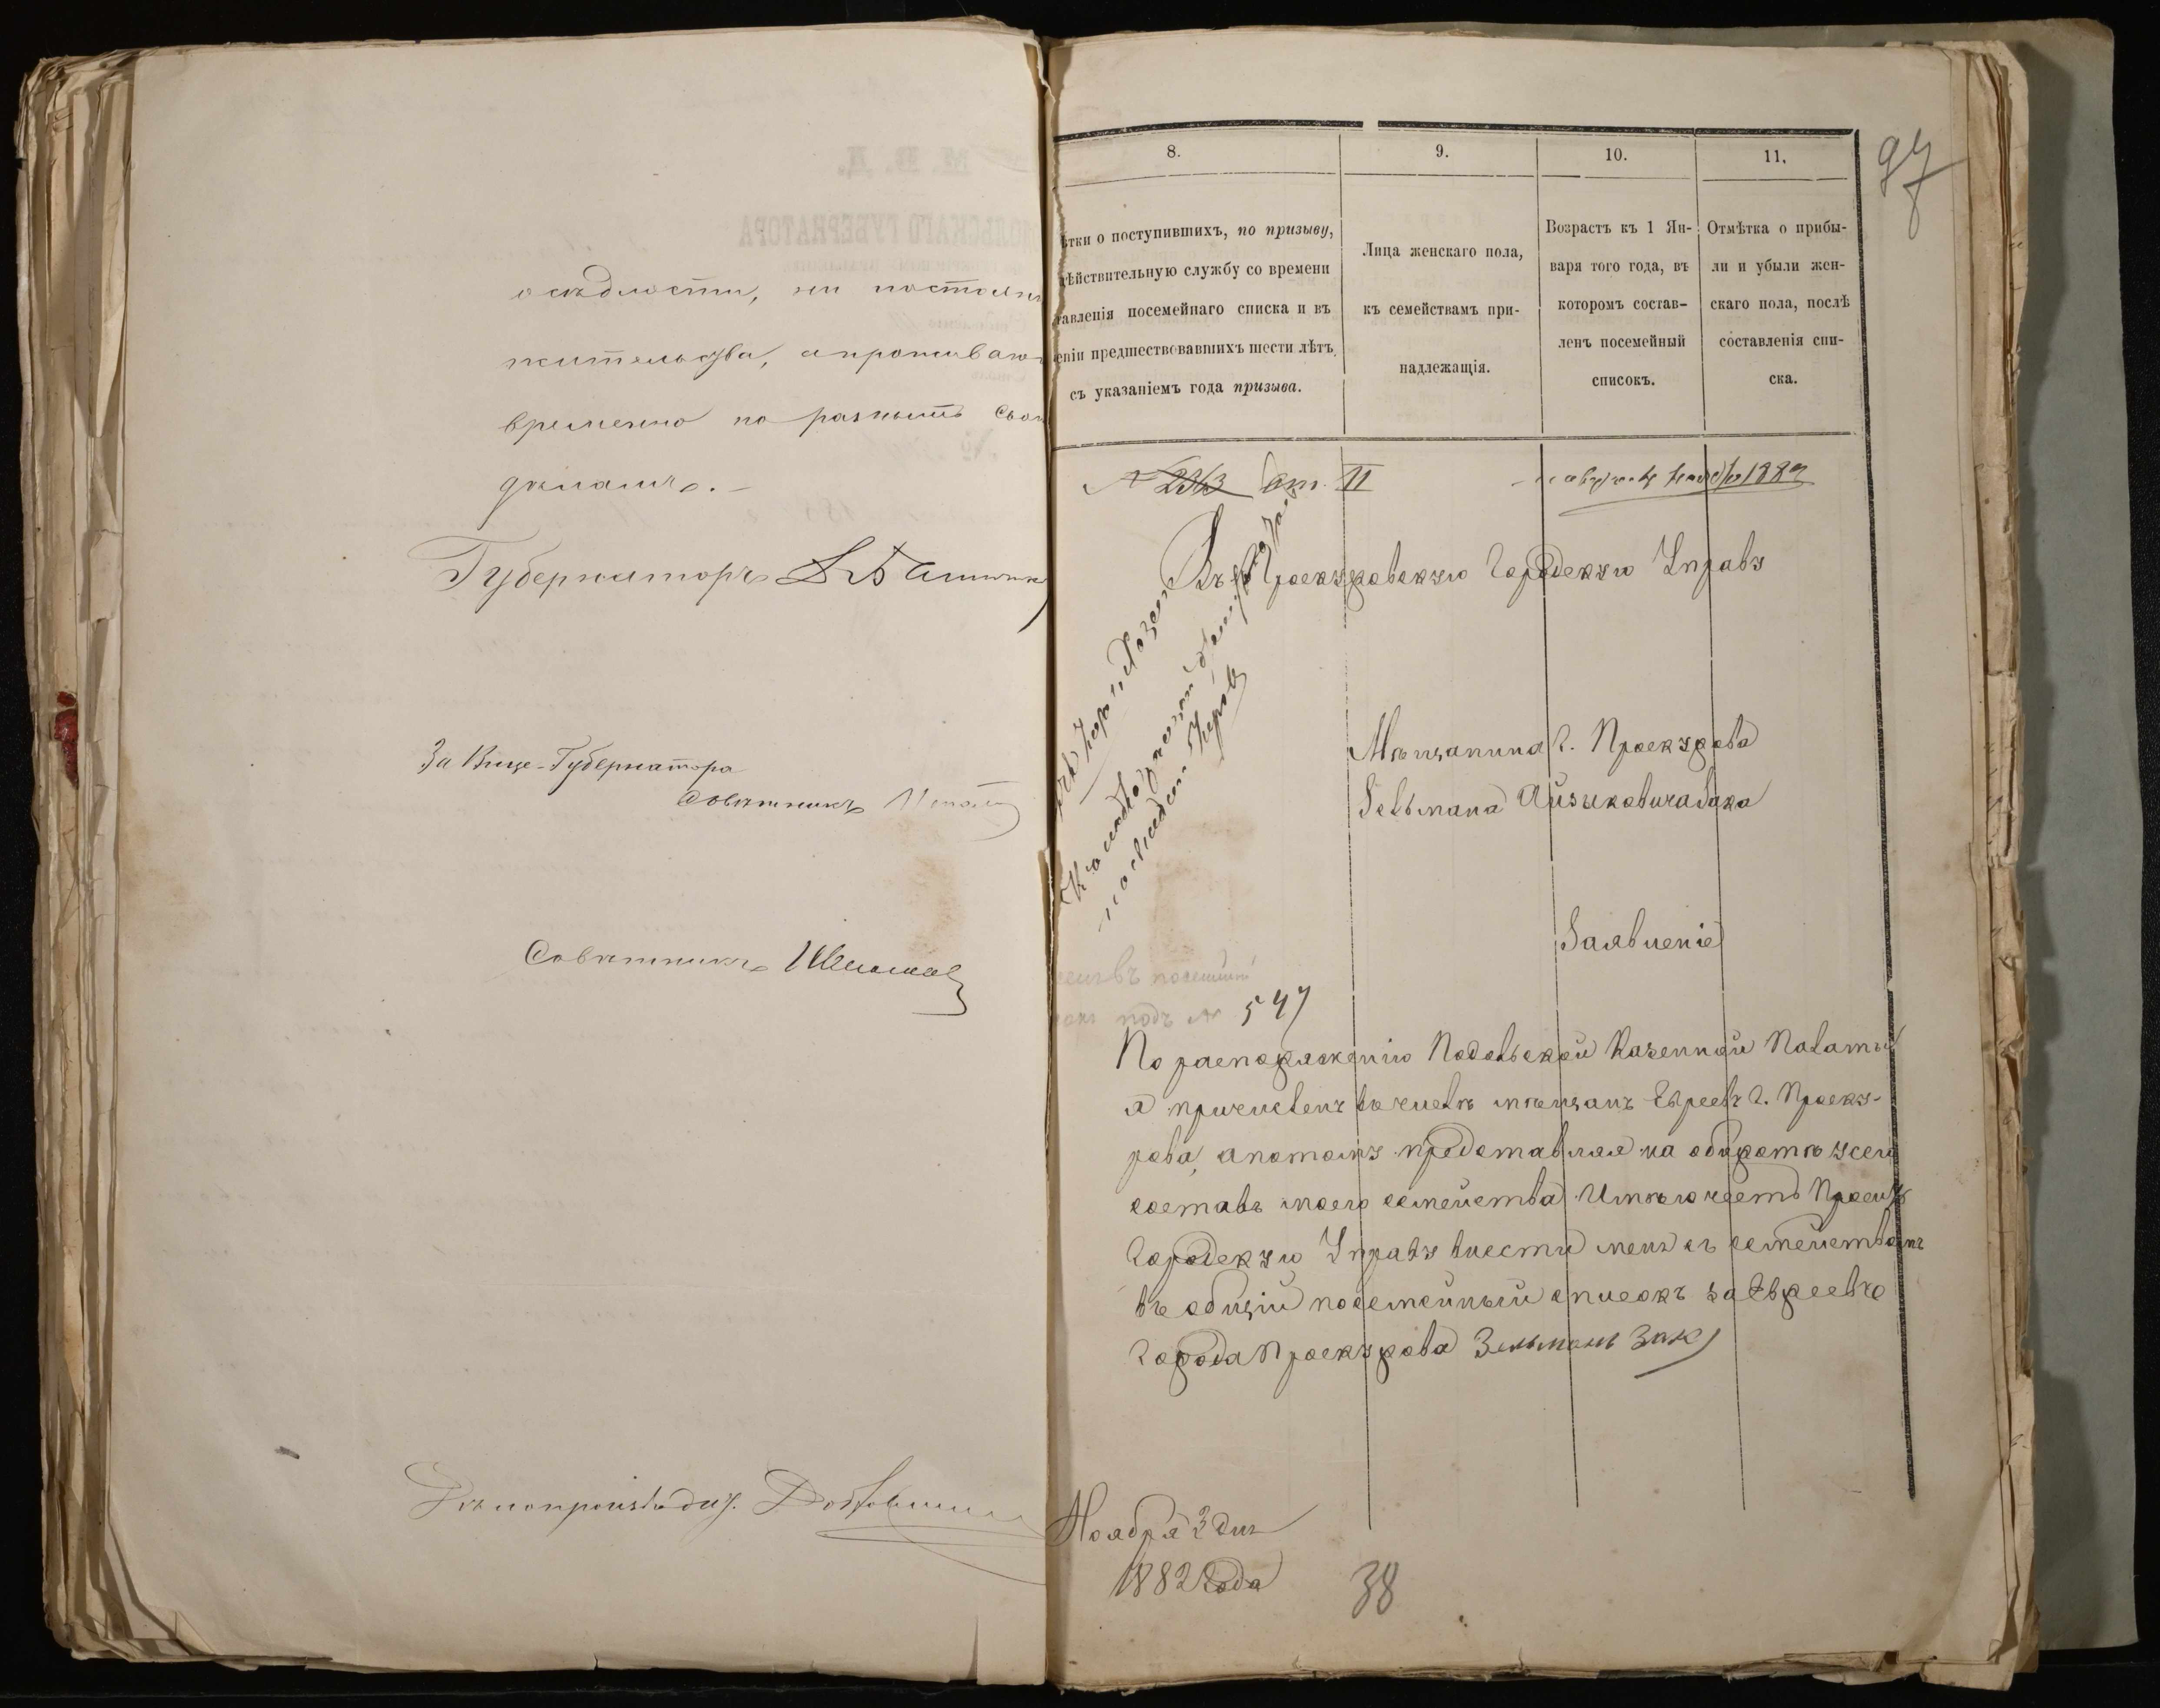 осѣдлости, ни постоян
жительства, а проживаю
временно по разнымъ сво
дѣламъ.
Губернаторъ
За Вице-Губернатора
Совѣтникъ
Совѣтникъ
Дѣлопроизвод.
97
8.
9.
10.
11.
ѣтки о поступившихъ, по призыву,
дѣйствительную службу со времени
тавленія посемейнаго списка и въ
еніи предшествовавшихъ шести лѣтъ,
съ указаніемъ года призыва.
Лица женскаго пола,
къ семействамъ при-
надлежащія.
Возрастъ къ 1 Ян-
варя того года, въ
которомъ состав-
ленъ посемейный
списокъ.
Отмѣтка о прибы-
ли и убыли жен-
скаго пола, послѣ
составленія спи-
ска.
Въ Проскуровскую Городскую Управу
Мѣщанина г. Проскурова
Зельмана Айзиковича Зака
Заявленіе
въ посемейн
подъ № 547
По распоряженію Подольской Казенной Палаты
я причисленъ въ число мѣщанъ Евреевъ г. Проску-
рова, а потому представляя на оборотѣ сего
составъ моего семейства Имѣю честь Просить
Городскую Управу внести меня съ семействомъ
въ общій посемейный списокъ за Евреевъ
города Проскурова Зельманъ Зак
Ноября 3 дня
1882 года
38